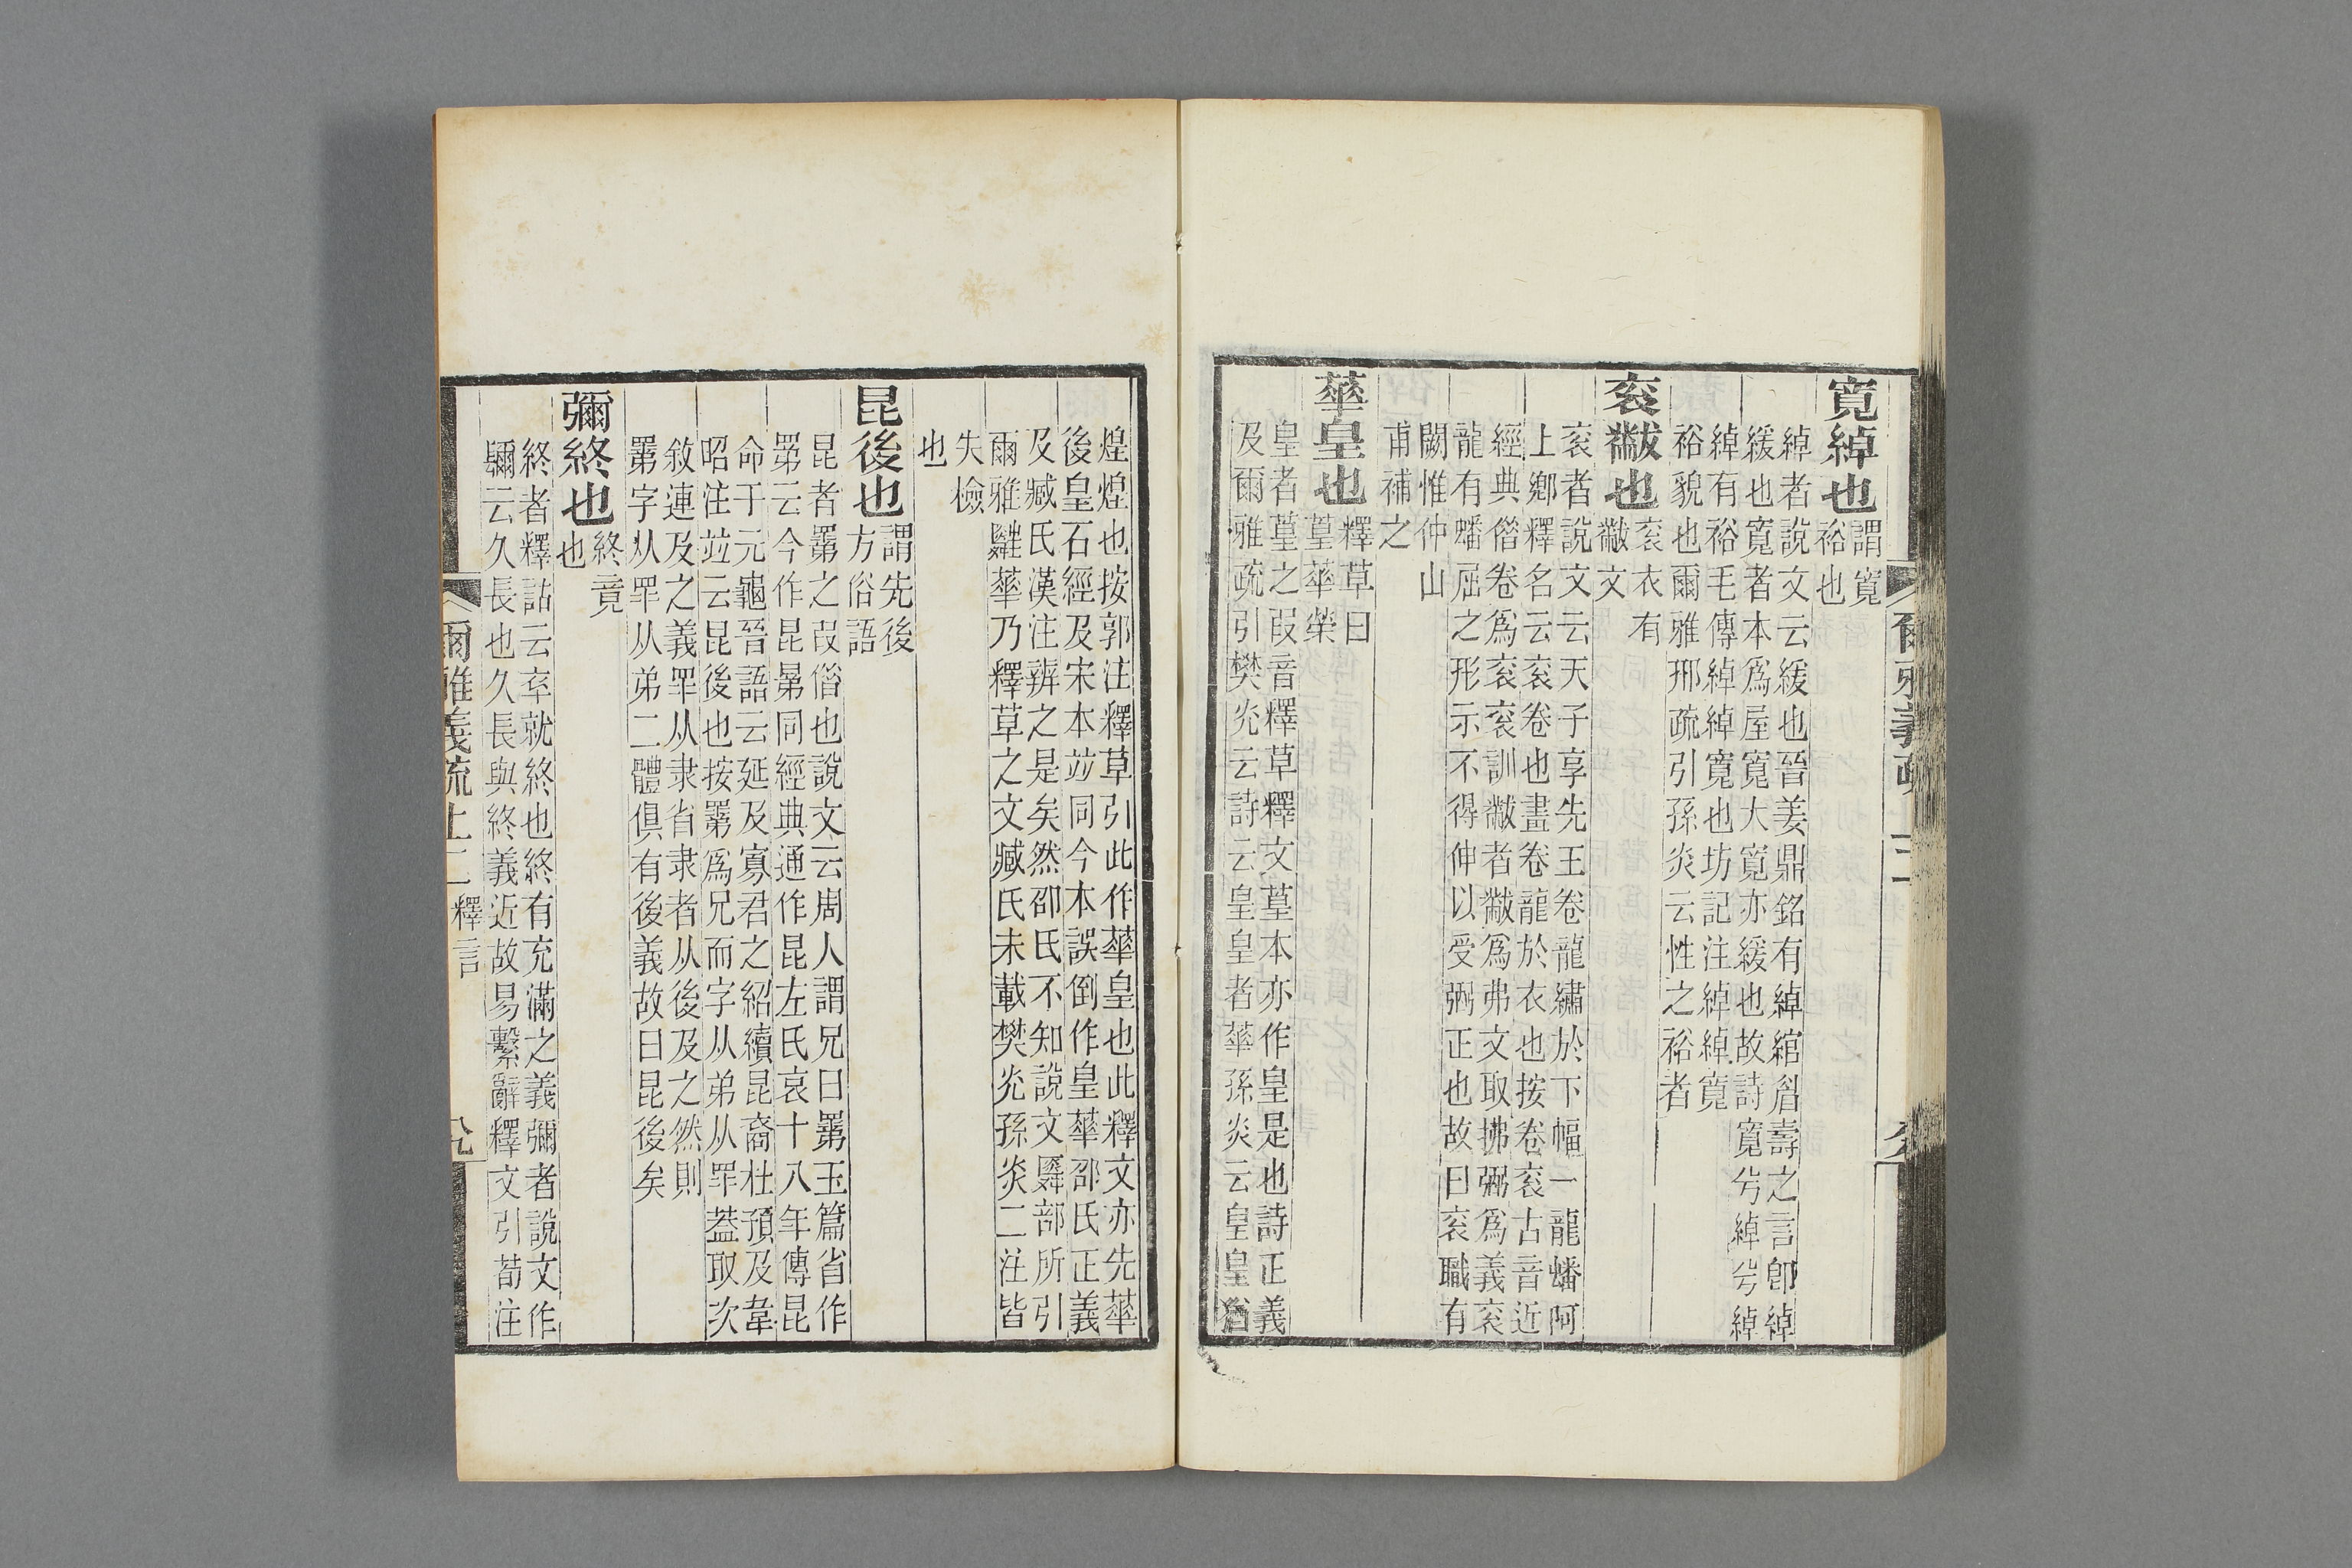 寬綽也 謂寬
裕也
綽者說文云緩也晉姜鼎銘有綽綰眉壽之言卽綽
緩也寬者本爲屋寬大寬亦緩也故詩寬兮綽兮綽
綽有裕毛傳綽綽寬也坊記注綽綽寬
裕貌也爾雅邢疏引孫炎云性之裕者
袞黻也 袞衣有
黻文
袞者說文云天子享先王卷龍繡於下幅一龍蟠阿
上鄉釋名云袞卷也畫卷龍於衣也按卷袞古音近
經典借卷爲袞袞訓黻者黻爲弗文取拂弼爲義袞
龍有蟠屈之形示不得伸以受弼正也故曰袞職有
闕惟仲山
甫補之
華皇也 釋草曰
葟華榮
皇者葟之叚音釋草釋文葟本亦作皇是也詩正義
及爾雅疏引樊光云詩云皇皇者華孫炎云皇皇猶
煌煌也按郭注釋草引此作華皇也此釋文亦先華
後皇石經及宋本竝同今本誤倒作皇華邵氏正義
及臧氏漢注辨之是矣然邵氏不知說文𦾓部所引
爾雅䴡華乃釋草之文臧氏未載樊光孫炎二注皆
失檢
也
昆後也 謂先後
方俗語
昆者䍔之叚借也說文云周人謂兄曰䍔玉篇省作
䍔云今作昆晜同經典通作昆左氏哀十八年傳昆
命于元龜晉語云延及寡君之紹續昆裔杜預及韋
昭注竝云昆後也按䍔爲兄而字从弟从眔蓋取次
敘連及之義眔从隶省隶者从後及之然則
䍔字从眔从弟二體俱有後義故曰昆後矣
彌終也 終竟
也
終者釋詁云卒就終也終有充滿之義彌者說文作
镾云久長也久長與終義近故易繫辭釋文引荀注
爾雅義疏上二 釋言